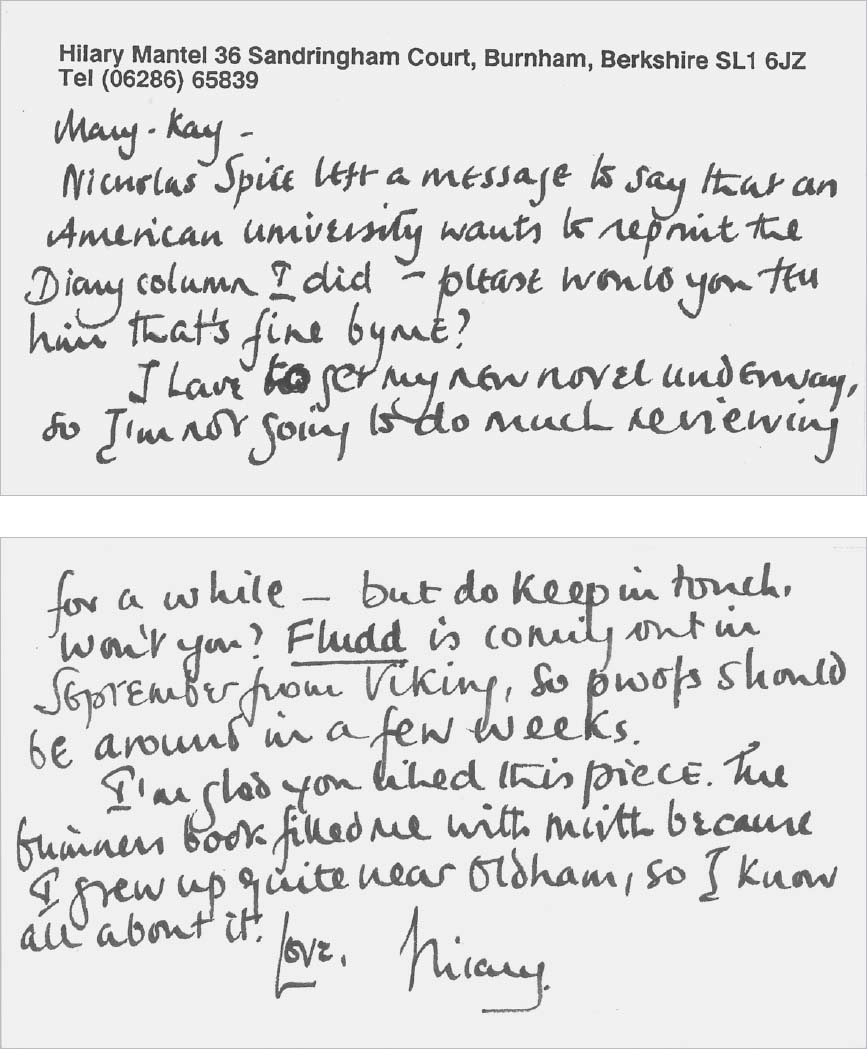 Hilary Mantel 36 Sandringham Court, Burnham, Berkshire SL1 6JZ
Tel (06286) 65839
Mary-Kay –
Nicholas Spice left a message to say that an
American university wants to reprint the
Diary column I did – please would you tell
him that's fine by me?
I have to get my new novel underway,
so I'm not going to do much reviewing
for a while – but do keep in touch,
won't you? Fludd is coming out in
September from Viking, so proofs should
be around in a few weeks.
I'm glad you liked this piece. The
Guinness book filled me with mirth because
I grew up quite near Oldham, so I know
all about it.
Love,
Hilary.